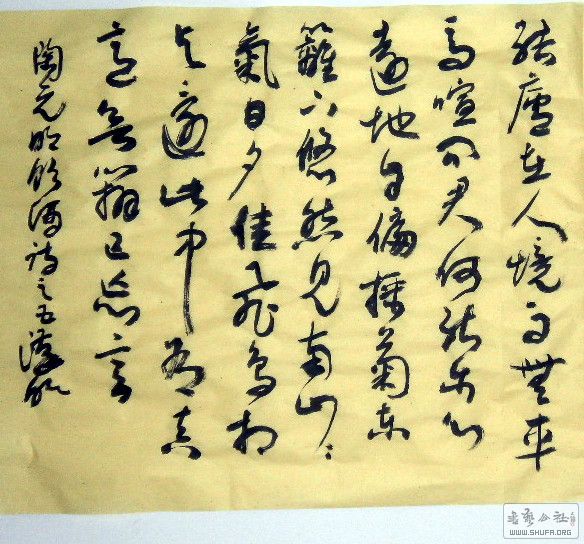 結廬在人境而無車
馬喧問君何能爾心
遠地自偏採菊東
籬下悠然見南山々
氣日夕佳飛鳥相
與還此中有真
意欲辨已忘言
陶元明飲酒詩之五
書法公社
WWW.SHUFA.ORG